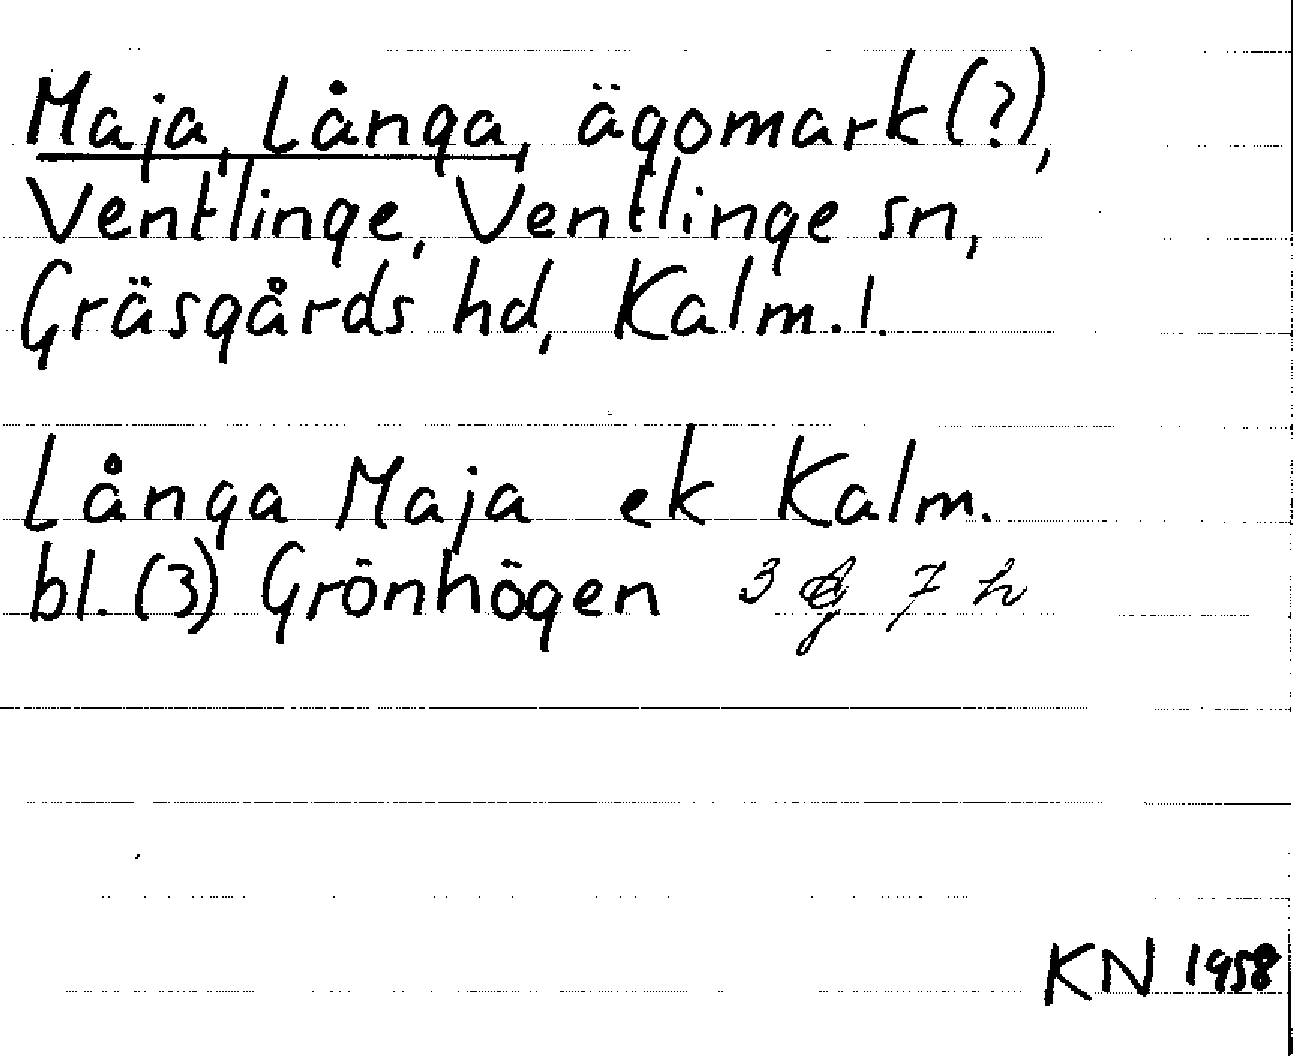 Maja, Långa, ägomark(?),
Ventlinge, Ventlinge sn,
Gräsgårds hd, Kalm. l.
Långa Maja ek Kalm.
bl. (3) Grönhögen 3 g 7 h
KN 1958